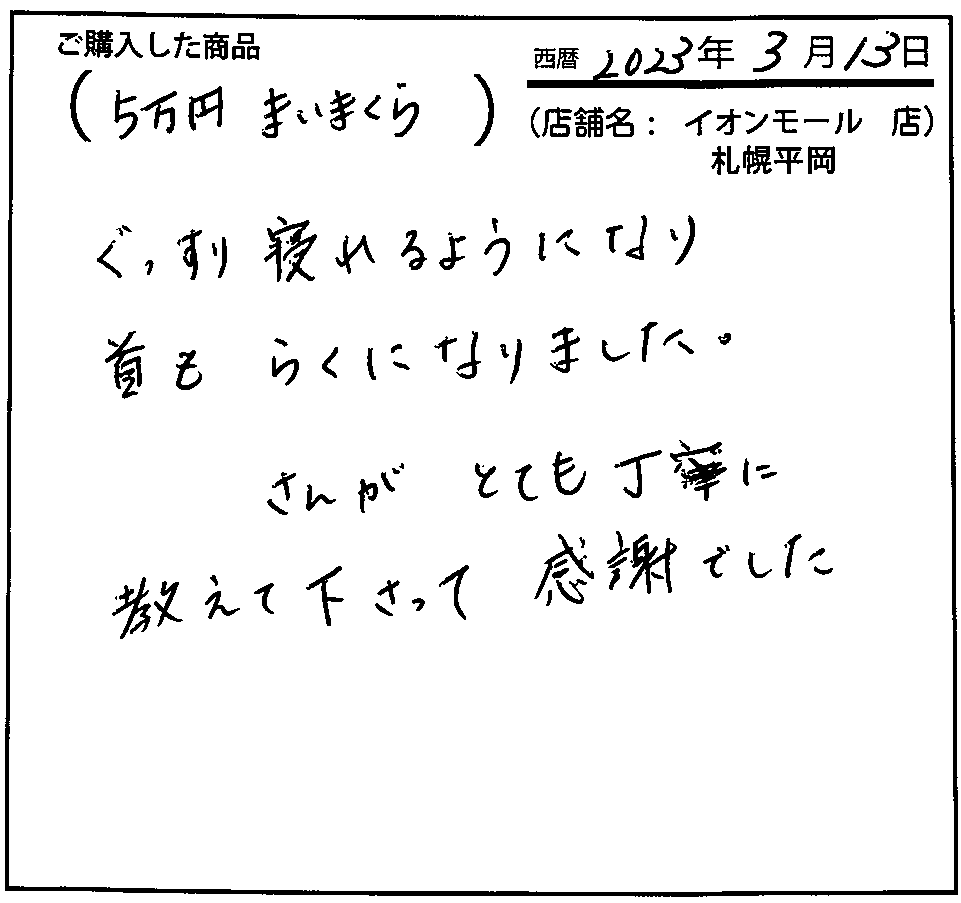 ご購入した商品
(5万円 まいまくら)
西暦 2023年 3月13日
(店舗名： イオンモール 店)
札幌平岡
ぐっすり寝れるようになり
首も らくになりました。
さんが とても丁寧に
教えて下さって 感謝でした